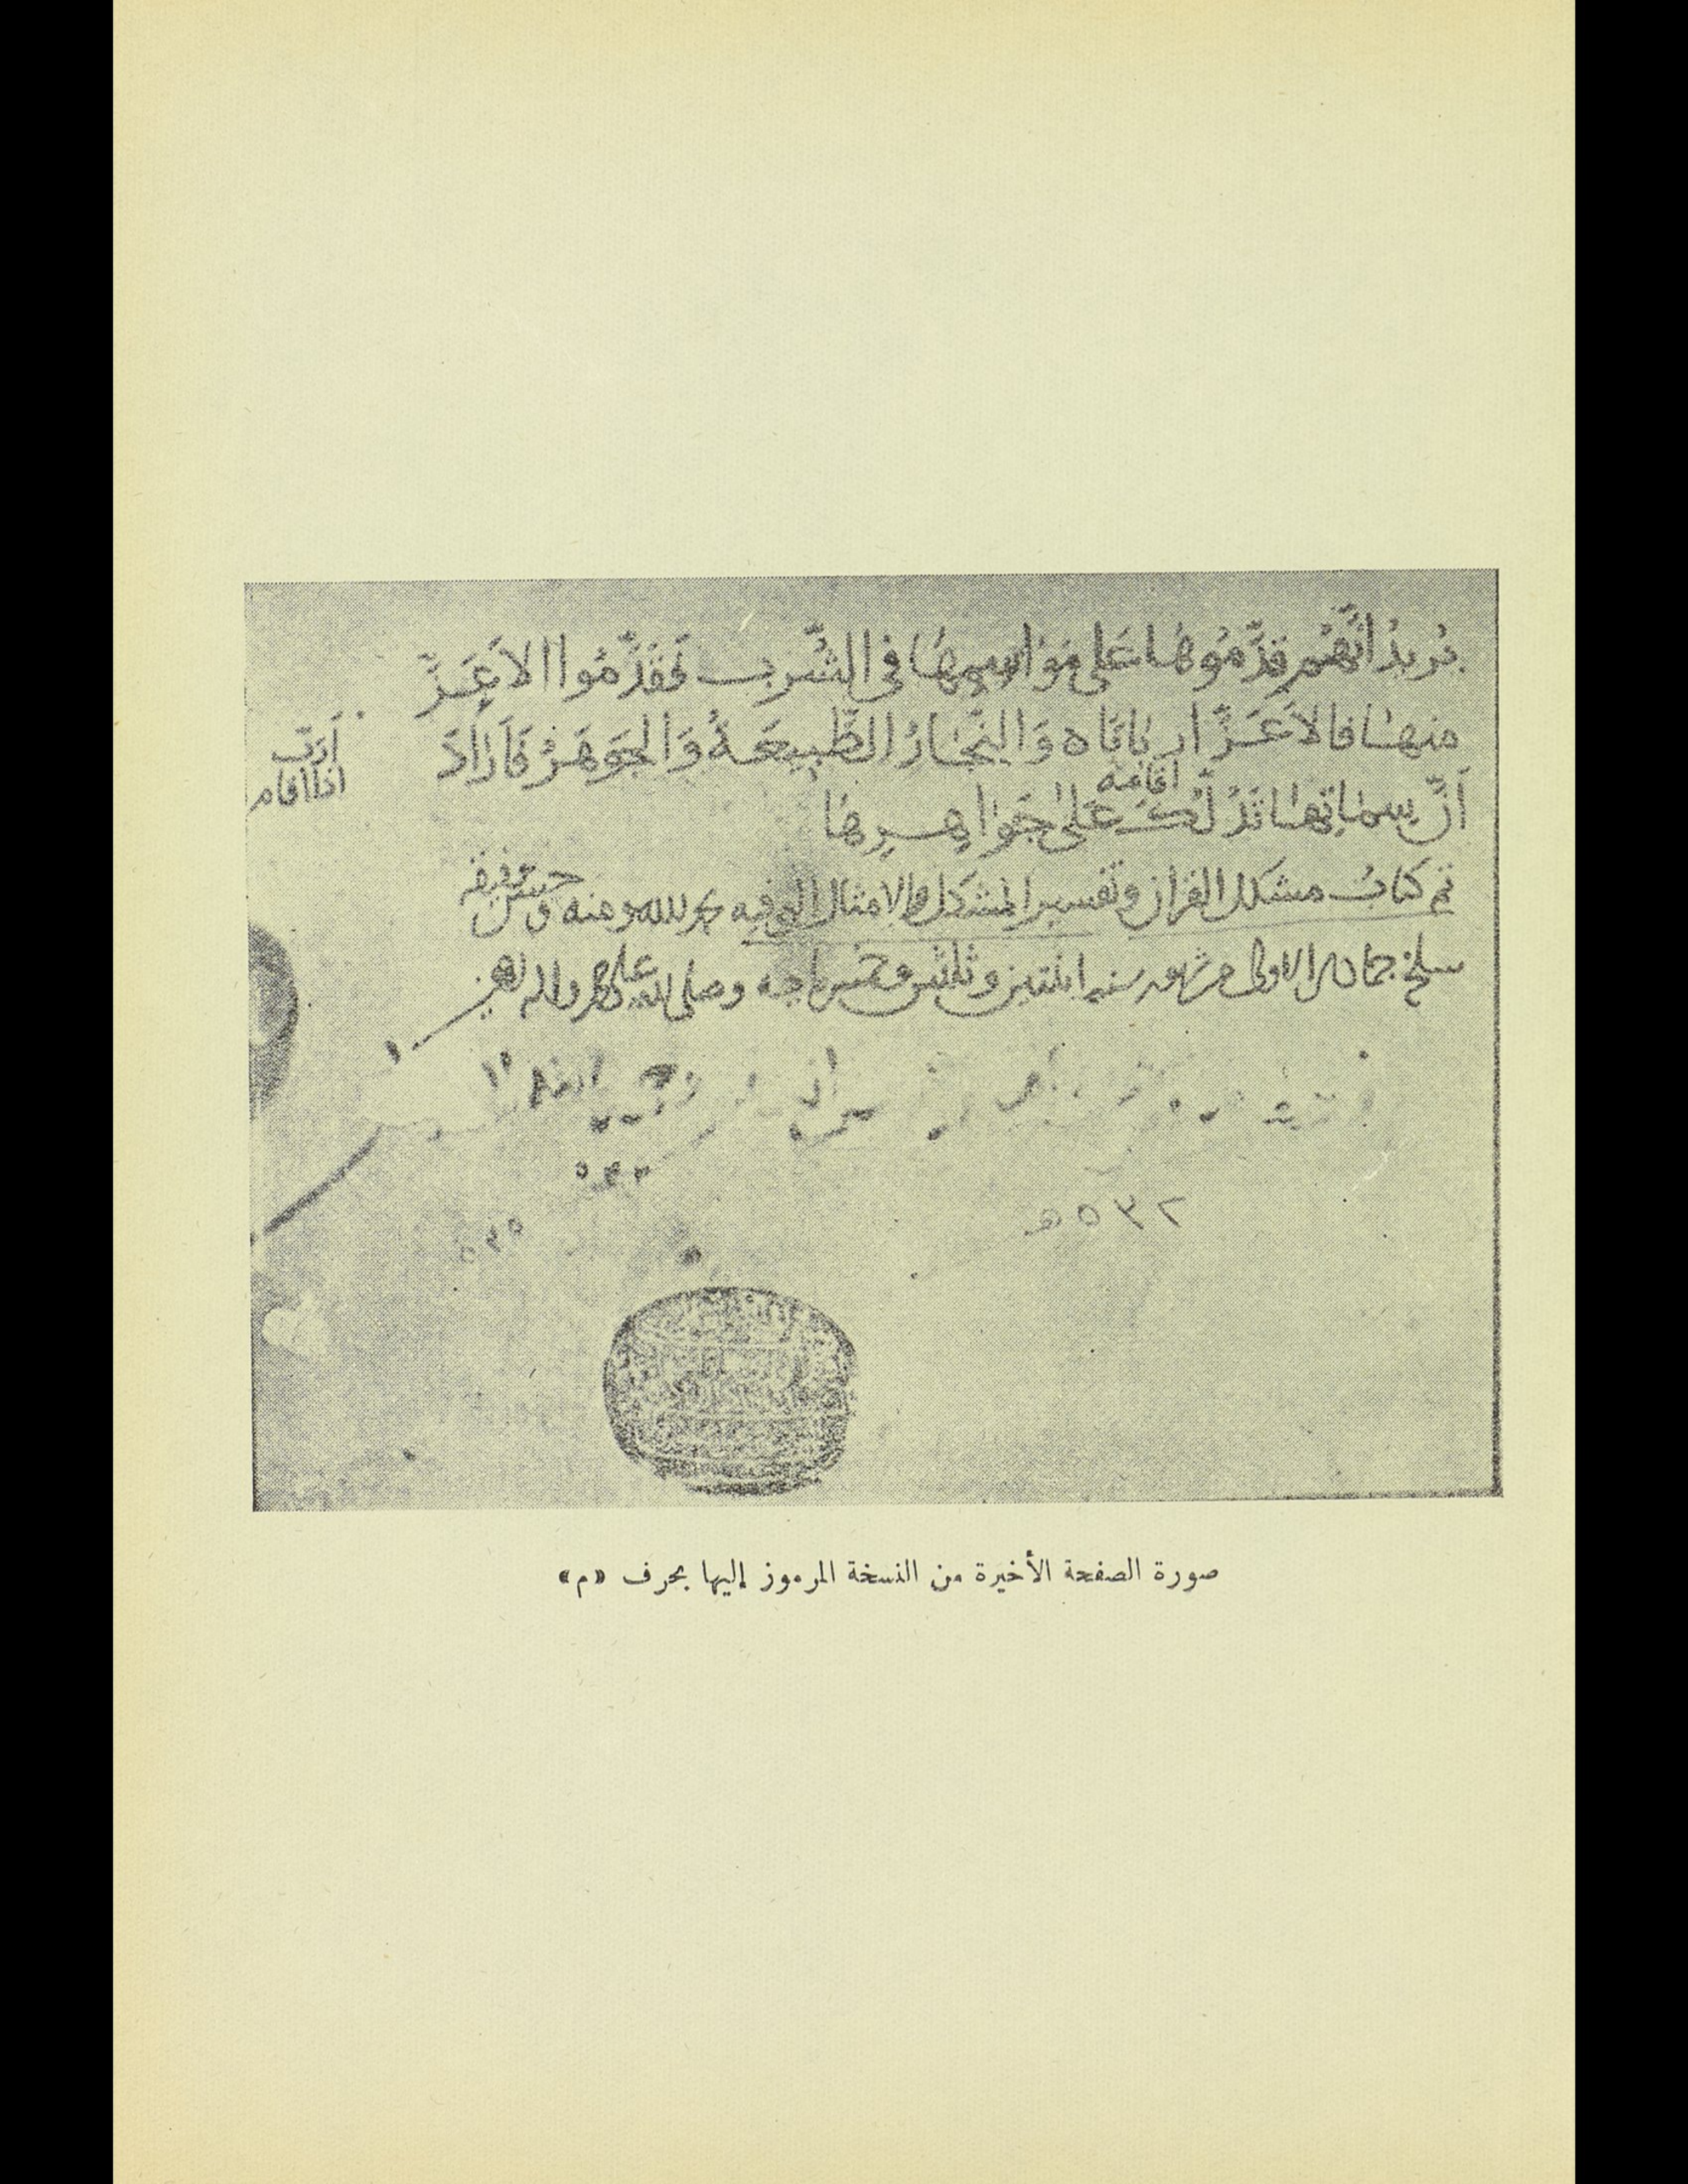 يُرِيدُ انَّهُمْ قَدَّمُوهَا عَلى مَوَاسِمِهَا فِي الشُّرب فَقَدَّمُوا الاَعَزَّ
منهَا فالاَعَزَّ ارباباه وَالنِّجَارُ الطَّبيعَةُ وَالجَوهَرُ فَاَرَادَ
اَرَبَّ
اذا اقام
اقامه
اَنَّ سِمَاتِهَا تَدُلُّكَ عَلَى جَوَاهِرِهَا
تم كتاب مشكل القران وتفسير المشكل والامثال التى فيه بحمد الله ومنه وحسن توفيقه
سلخ جمادى الاولى من شهور سنه اثنتين وثلثين وخمس مايه وصلى الله على محمد واله
٥٣٢هـ
صورة الصفحة الأخيرة من النسخة المرموز إليها بحرف «م»